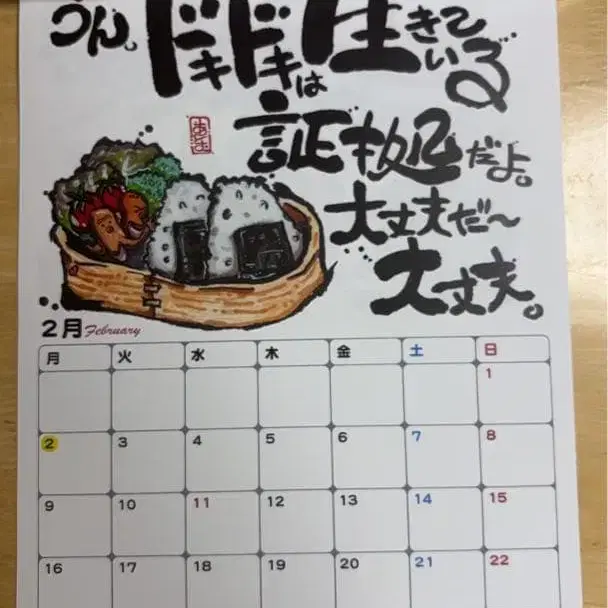 うん。ドキドキは生きている
証拠だよ。
大丈夫だ〜
大丈夫。
2月 February
月 火 水 木 金 土 日
1
2 3 4 5 6 7 8
9 10 11 12 13 14 15
16 17 18 19 20 21 22